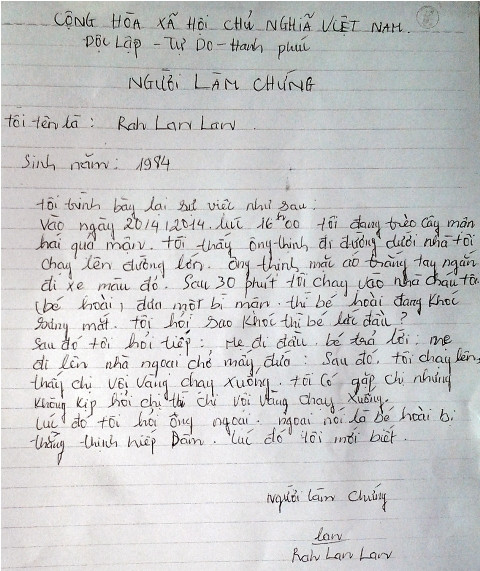 CỘNG HÒA XÃ HỘI CHỦ NGHĨA VIỆT NAM.
Độc Lập - Tự Do - Hanh phúc
NGƯỜI LÀM CHỨNG
tôi tên là : Rah Lan Lan.
Sinh năm : 1984
tôi trình bày lai sư viêc như sau :
Vào ngày 20/4/2014. lúc 16h00 tôi đang trèo cây mân
hai quả mân. tôi thấy ông thinh đi đường dưới nhà tôi
chay lên đường lớn. Ông thinh mắc áo trắng tay ngắn
đi xe màu đỏ. Sau 30 phút tôi chay vào nhà cháu tôi
(bé hoài), đưa một bi mân. thì bé hoài đang khóc
sưng mắt. tôi hỏi sao khóc thì bé lắc đầu ?
Sau đó tôi hỏi tiếp : Mẹ đi đâu. bé trả lời : mẹ
đi lên nhà ngoai chẻ mấy đứa : Sau đó, tôi chay lên,
thấy chi vôi vàng chay xuống. tôi có gặp chi nhưng
không kip hỏi chi thì chi vôi vàng chay xuống.
Luc đó tôi hỏi ông ngoai. ngoai nói là bé hoài bi
thằng thinh hiếp Dâm. lúc đó tôi mới biết.
Người làm chứng
lan
Rah Lan Lan